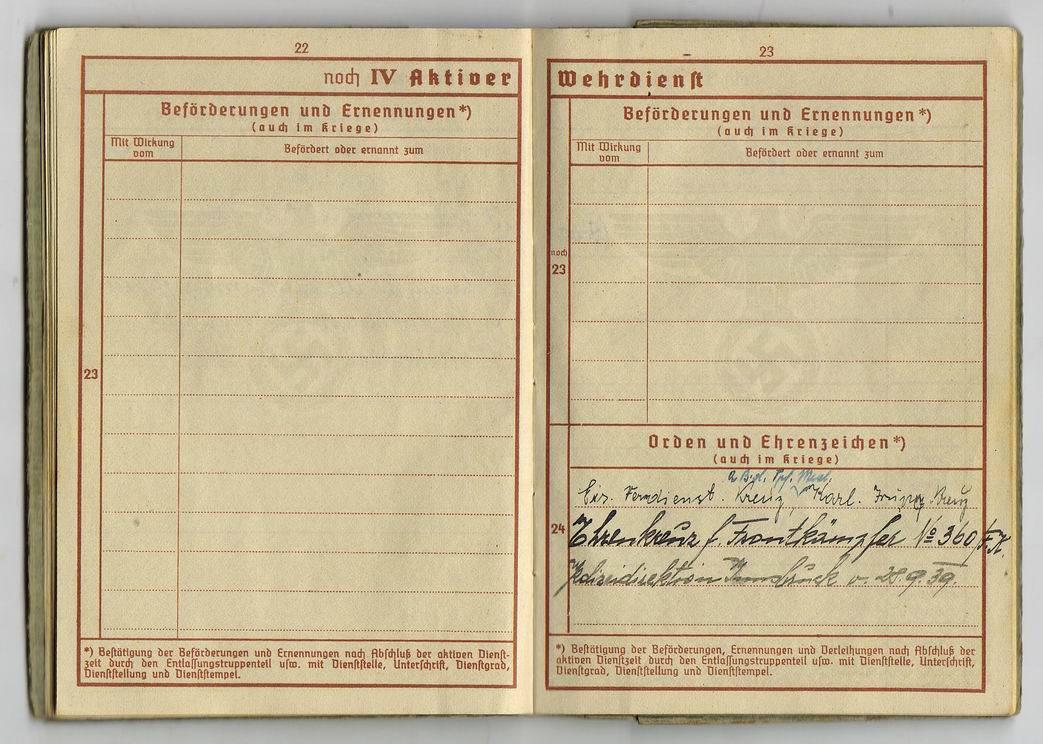 22
noch IV Aktiver
Beförderungen und Ernennungen*)
(auch im Kriege)
Mit Wirkung vom
Befördert oder ernannt zum
23
*) Bestätigung der Beförderungen und Ernennungen nach Abschluß der aktiven Dienst-
zeit durch den Entlassungstruppenteil usw. mit Dienststelle, Unterschrift, Dienstgrad,
Dienststellung und Dienststempel.
23
Wehrdienst
Beförderungen und Ernennungen*)
(auch im Kriege)
Mit Wirkung vom
Befördert oder ernannt zum
noch
23
Orden und Ehrenzeichen*)
(auch im Kriege)
Kreuz Karl. Kreuz
24
Ehrenkreuz f. Frontkämpfer No 360/F.K.
Polizeidirektion Innsbruck v. 28.9.39.
*) Bestätigung der Beförderungen, Ernennungen und Verleihungen nach Abschluß der
aktiven Dienstzeit durch den Entlassungstruppenteil usw. mit Dienststelle, Unterschrift,
Dienstgrad, Dienststellung und Dienststempel.